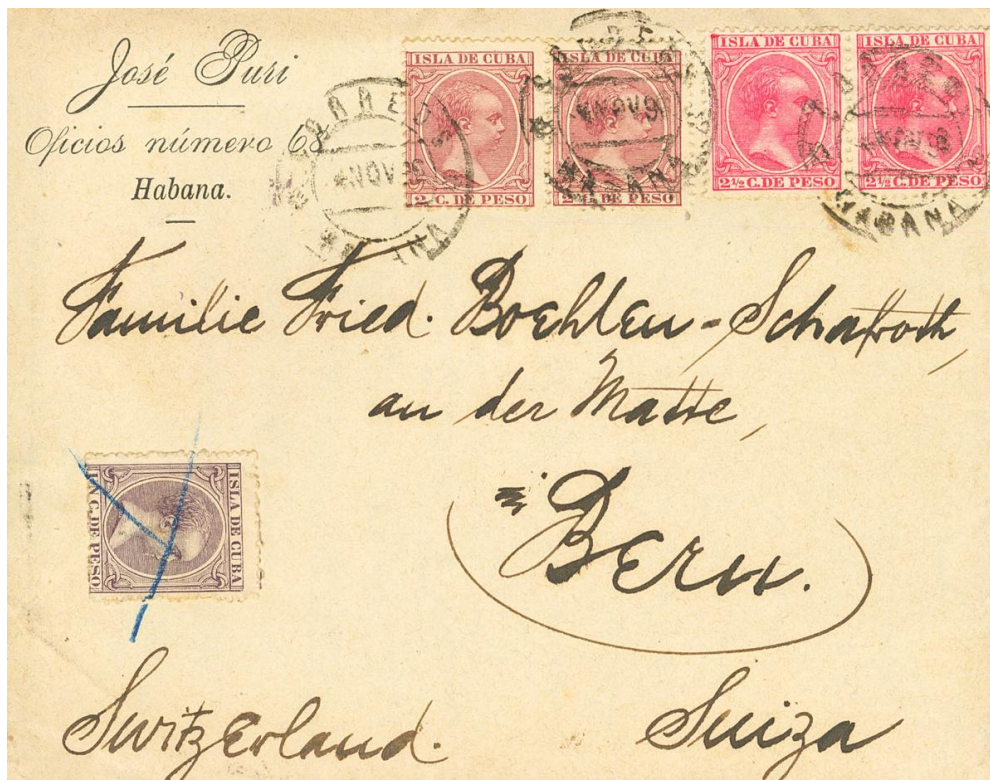 José Puri
Oficios número 68
Habana.
ISLA DE CUBA
2½ C. DE PESO
ISLA DE CUBA
2½ C. DE PESO
ISLA DE CUBA
2½ C. DE PESO
ISLA DE CUBA
2½ C. DE PESO
CORREOS
NOV
HABANA
NOV
HABANA
NOV
HABANA
Familie Fried. Boehlen-Schafroth,
an der Matte,
in
Bern.
ISLA DE CUBA
UN C. DE PESO
Switzerland. Suiza